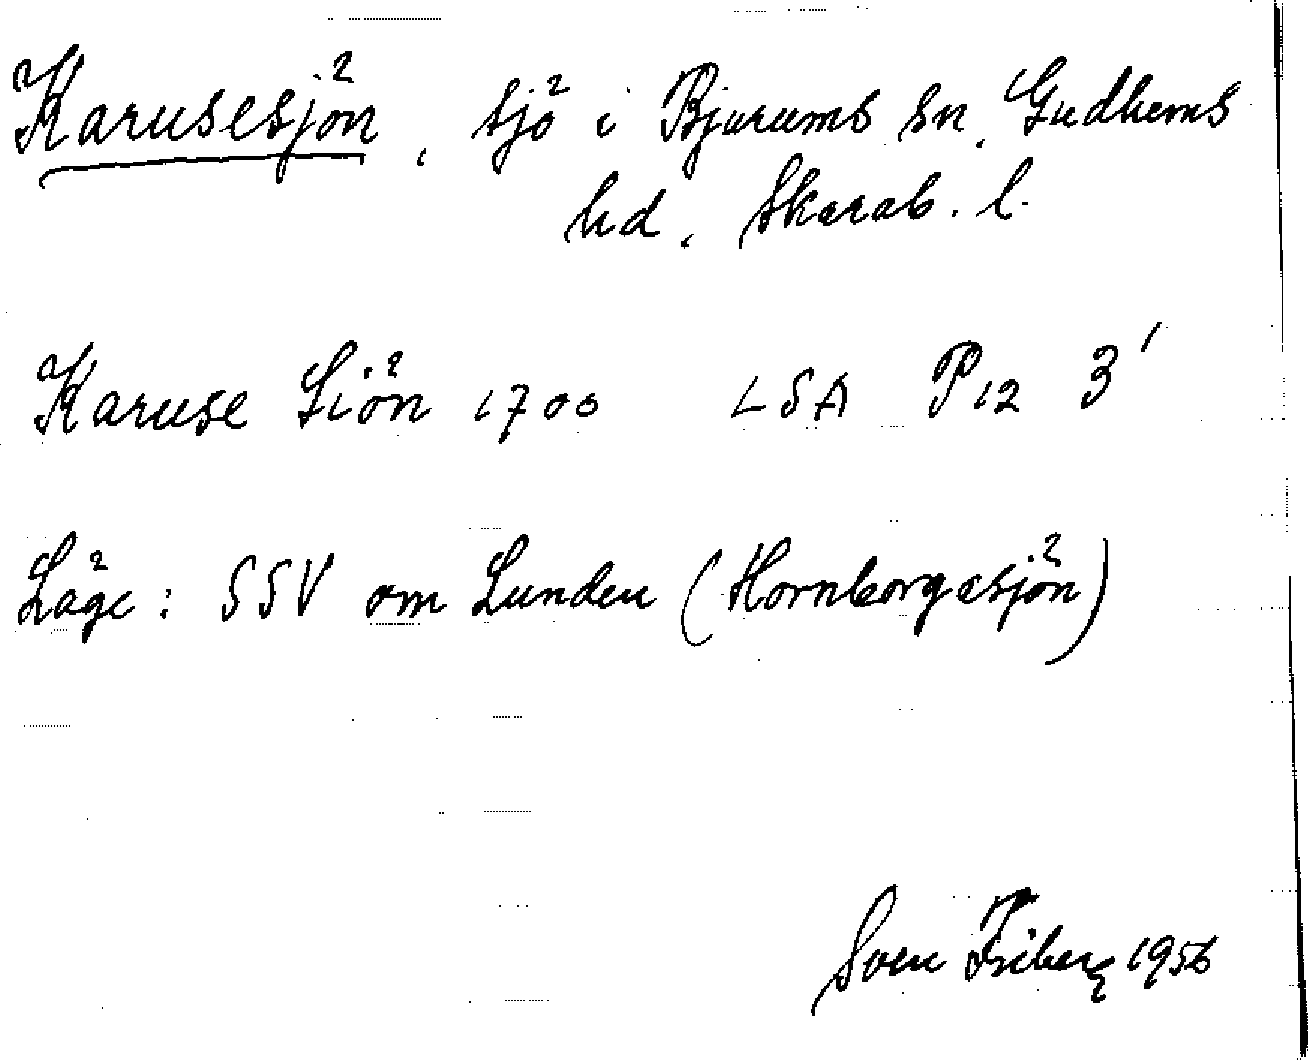 Karusesjön, sjö i Bjurums sn, Gudhems
hd, Skarab. l.
Karuse Siön 1700 LSA P12 3'
Läge: SSV om Lunden (Hornborgasjön)
Sven Friberg 1956